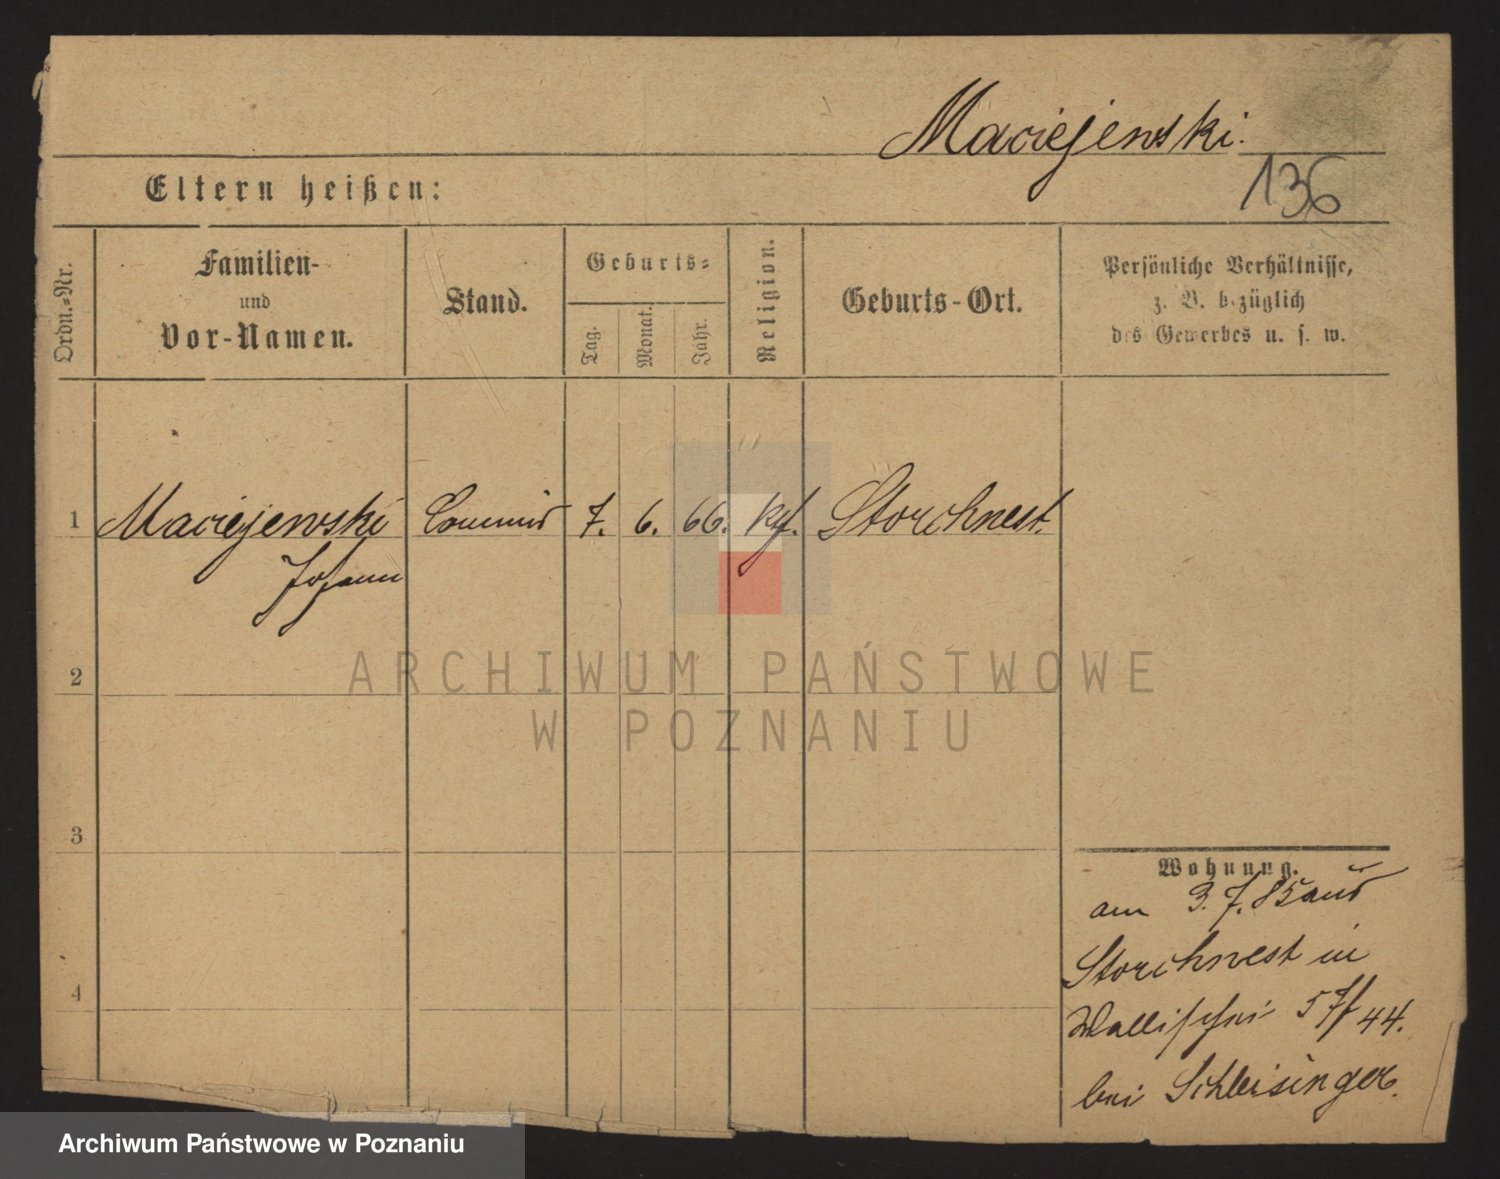 Maciejewski.
136
Eltern heißen:
Ordn.-Nr.
Familien-
und
Vor-Namen.
Stand.
Geburts-
Tag.
Monat.
Jahr.
Religion.
Geburts-Ort.
Persönliche Verhältnisse,
z. B. bezüglich
des Gewerbes u. s. w.
1 Maciejewski Commis 7. 6. 66. kth. Storchnest.
Johann
2
3
4
Wohnung.
am 3. 7. 85 aus
Storchnest in
Wallischei 57/44.
bei Schleisinger.
ARCHIWUM PAŃSTWOWE
W POZNANIU
Archiwum Państwowe w Poznaniu